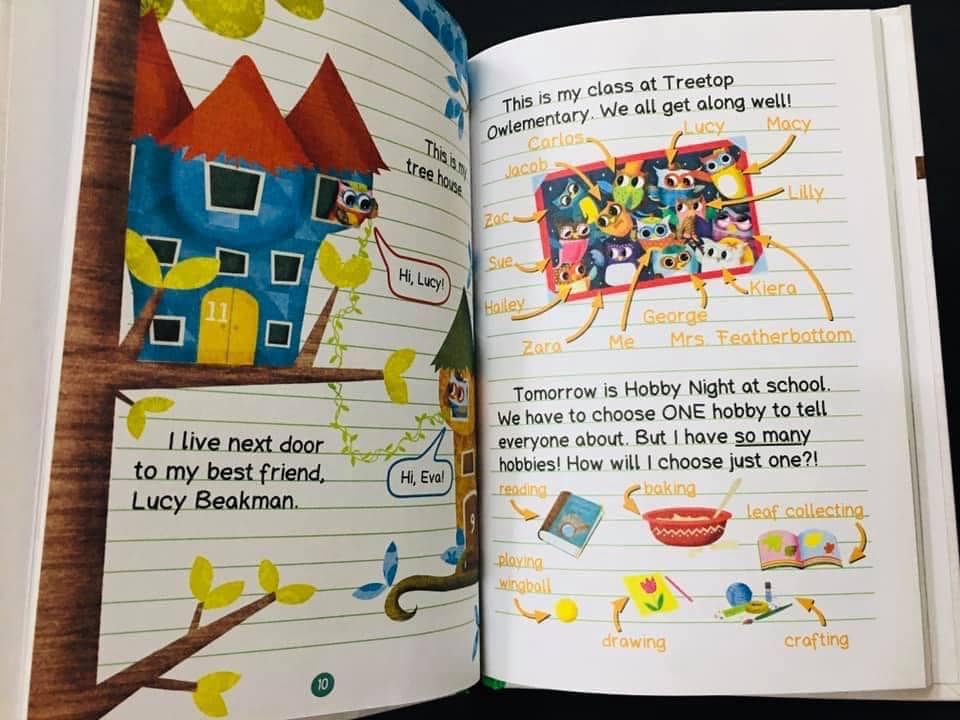 This is my
tree house.
11
Hi, Lucy!
I live next door
to my best friend,
Lucy Beakman.
Hi, Eva!
9
10
This is my class at Treetop
Owlementary. We all get along well!
Carlos
Lucy
Macy
Jacob
Lilly
Zac
Sue
Kiera
Hailey
George
Zara
Me
Mrs. Featherbottom
Tomorrow is Hobby Night at school.
We have to choose ONE hobby to tell
everyone about. But I have so many
hobbies! How will I choose just one?!
reading
baking
leaf collecting
playing
wingball
drawing
crafting